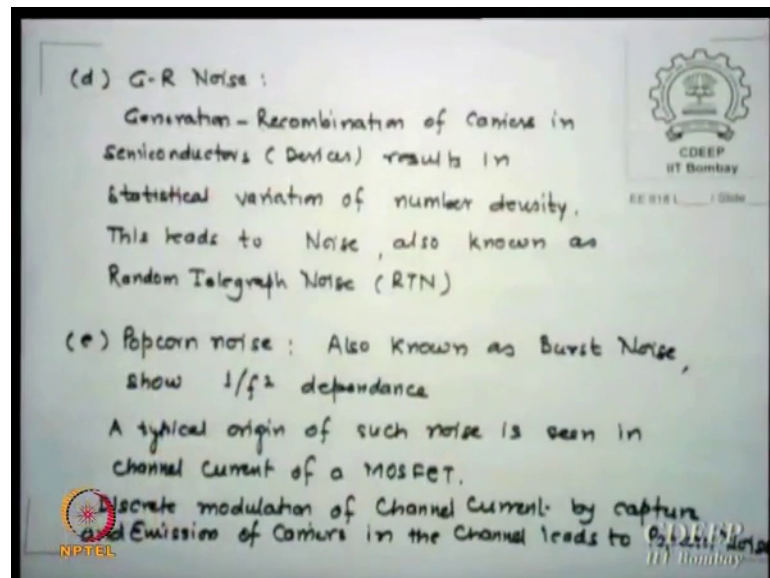 (d) G-R Noise :
Generation - Recombination of Carriers in
Semiconductors (Devices) results in
Statistical variation of number density.
This leads to Noise, also known as
Random Telegraph Noise (RTN)
(e) Popcorn noise : Also known as Burst Noise,
show 1/f2 dependance
A typical origin of such noise is seen in
Channel Current of a MOSFET.
Discrete modulation of Channel Current by capture
and Emission of Carriers in the Channel leads to Noise
CDEEP
IIT Bombay
EE 618 L / Slide
NPTEL
CDEEP
IIT Bombay